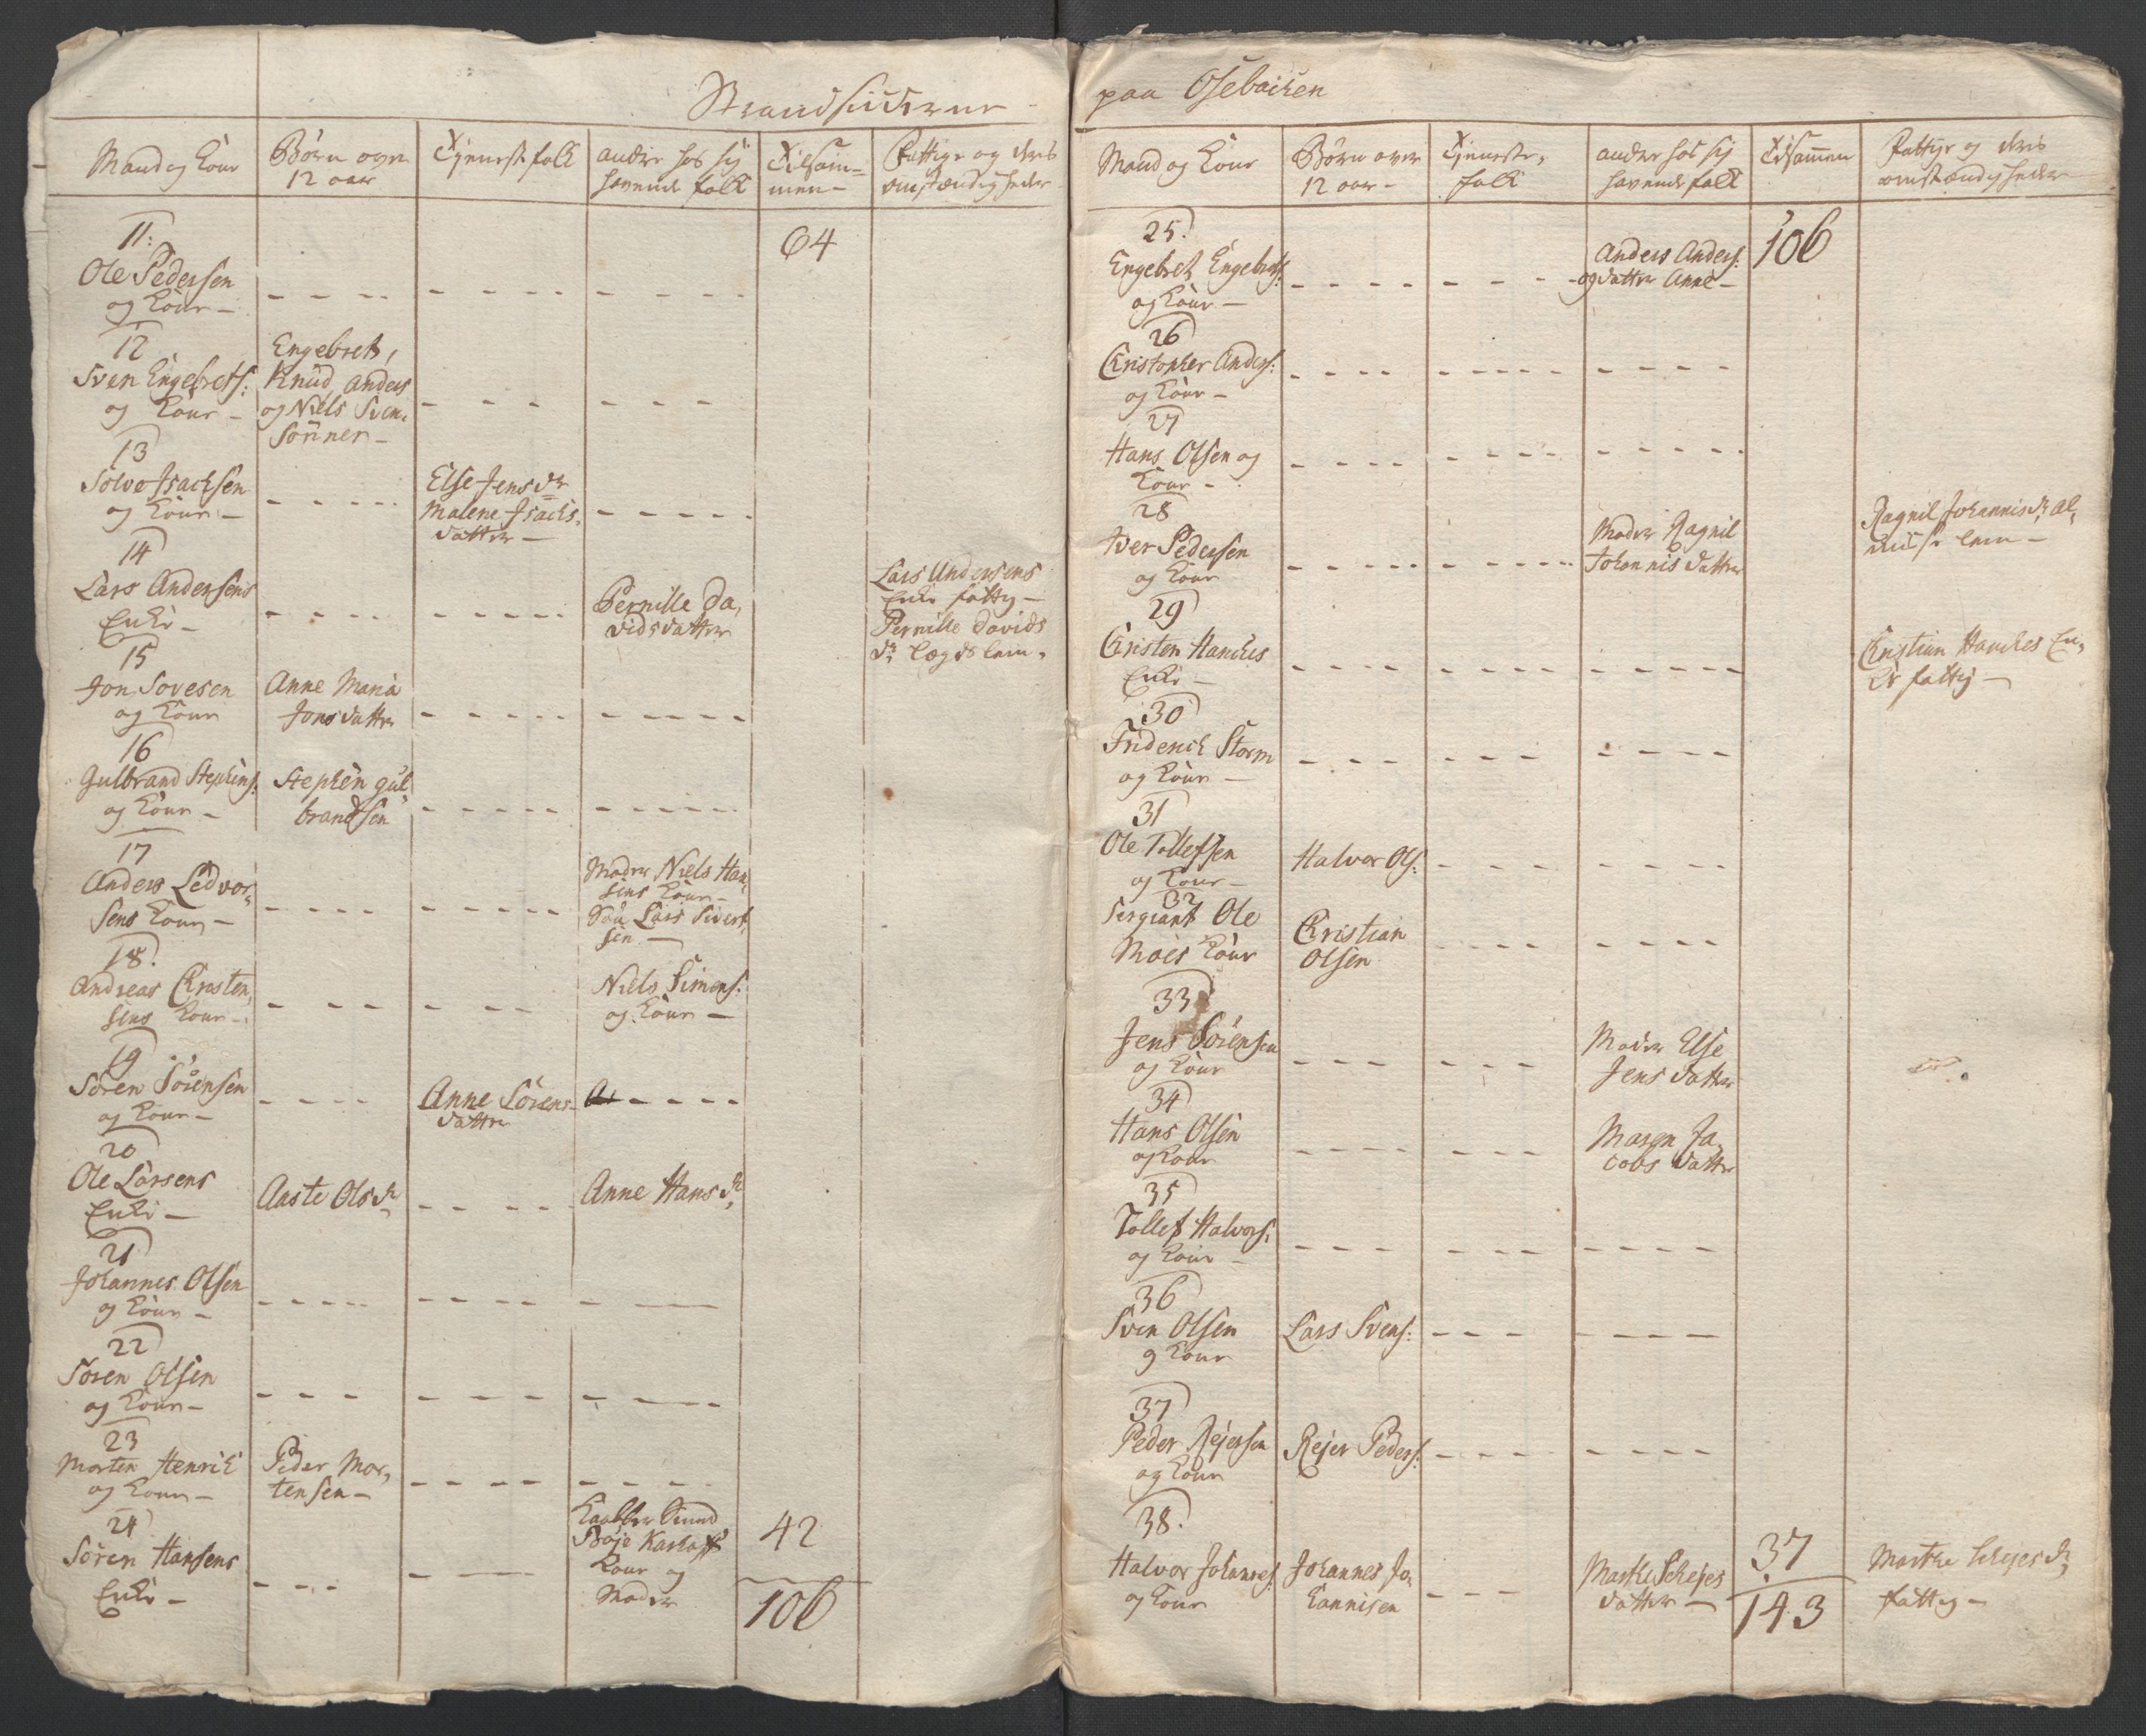 Strandsiderne
Mand og Kone
Børn over
12 aar
Tjenestfolk
andre hos sig
havende folk
Tilsam=
men
Fattige og deris
omstændigheder
11:
Ole Pedersen
og Kone
64
12
Sven Engebrets:
og Kone
Engebret,
Knud, Anders
og Niels Sven,
Sønner
13
Solve Isachsen
og Kone
Else Jens dr
Malene Isachs,
datter
14
Lars Andersens
Enke
Pernille Da,
vids datter
Lars Andersens
Enke fattig
Pernille Davids
dr, Lægdslem,
15
Jon Sovesen
og Kone
Anne Maria
Jons datter
16
Gulbrand Stephens:
og Kone
Stephen Gul
brandsen
17
Anders Ledvor,
sens Kone
Moder Niels Han,
sens Kone
Søn Lars Sivert,
sen
18.
Andreas Christen,
sens Kone
Niels Simons:
og Kone
19
Søren Sørensen
og Kone
Anne Sørens
datter
20
Ole Larsens
Enke
Aaste Ols dr
Anne Hans dr,
21
Johannes Olsen
og Kone
22
Søren Olsen
og Kone
23
Morten Henrik
og Kone
Peder Mor,
tensen
24
Søren Hansens
Enke
Kone og
Moder
42
106
paa Osebacken
Mand og Kone
Børn over
12 aar
Tjeneste,
folk
andre hos sig
havende folk
Tilsammen
Fattige og deris
omstændigheder
25.
Engebret Engebrets:
og Kone
Anders Anders:
og datter Anne
106
26
Christopher Anders:
og Kone
27
Hans Olsen og
Kone
28
Iver Pedersen
og Kone
Moder Ragnil
Johannis datter
Ragnil Johannis dr, al,
misse lem
29
Christen Hanches
Enke
Christian Hanches En,
ke fattig
30
Friderich Storm
og Kone
31
Ole Tollefsen
og Kone
Halvor Ols:
32
Sergiant Ole
Moes Kone
Christian
Olsen
33
Jens Sørensen
og Kone
Moder Else
Jens datter
34
Hans Olsen
og Kone
Maren Ja,
cobs datter
35
Tollef Halvors:
og Kone
36
Sven Olsen
og Kone
Lars Svens:
37
Peder Rejersen
og Kone
Rejer Peders:
38.
Halvor Johannes:
og Kone
Johannes Jo,
hannisen
datter
37
143
fattig